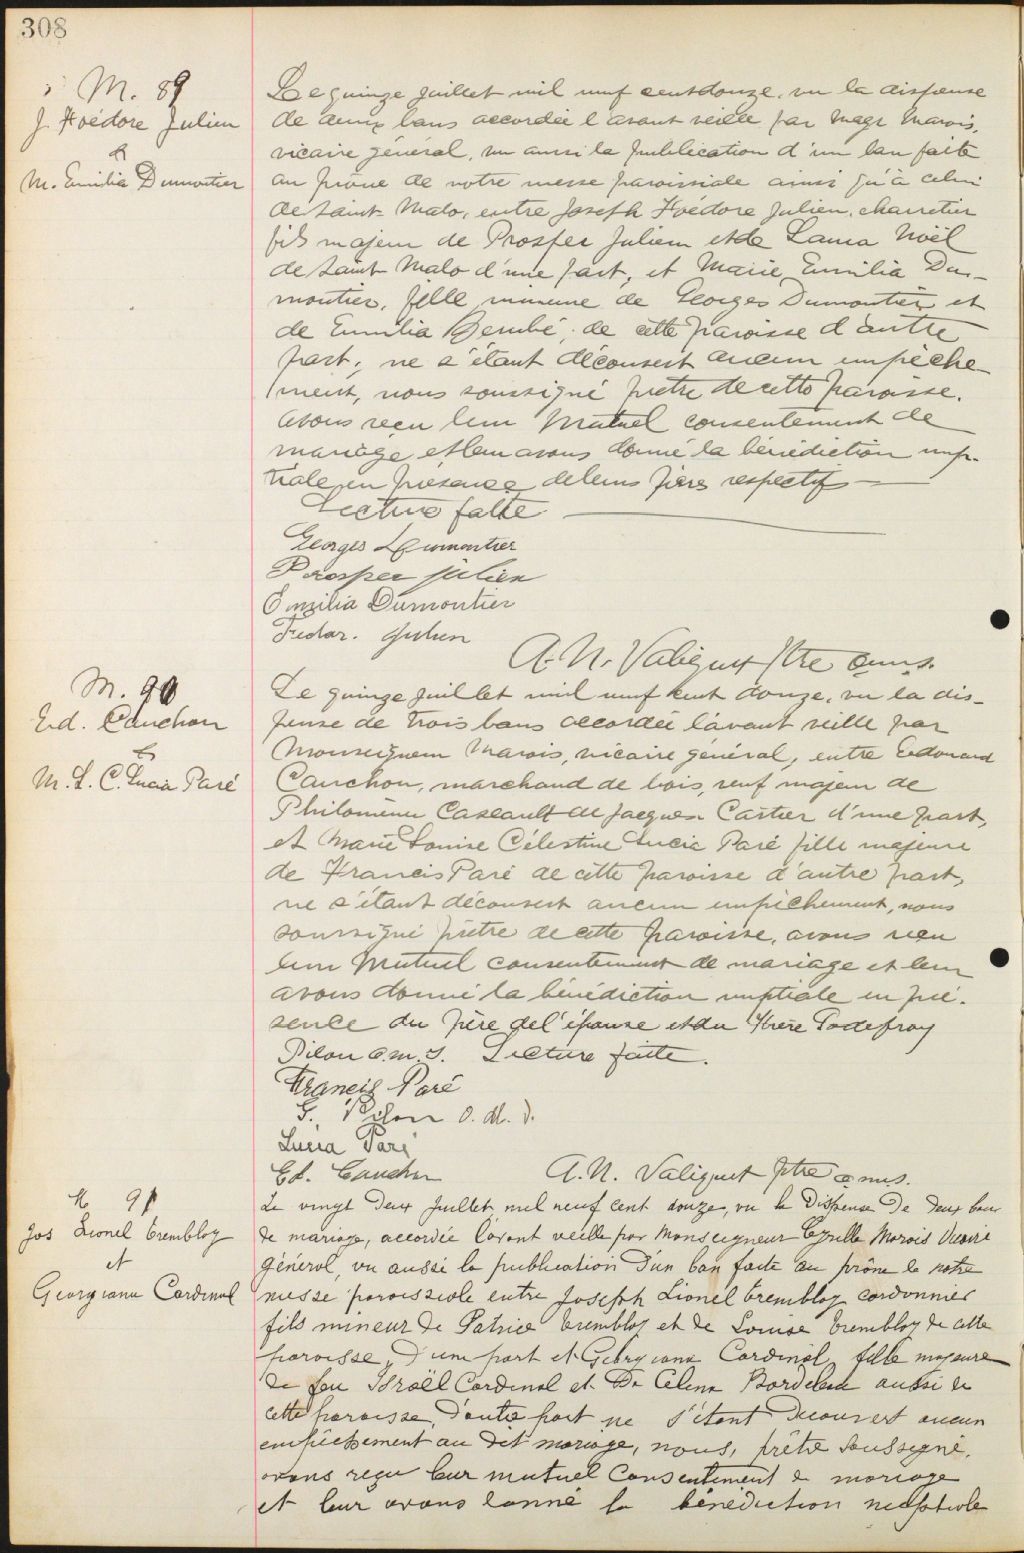 308
M. 89
J. Hoédore Julien
&
M. Emilia Dumontier
Le quinze juillet mil neuf cent douze, vu la dispense
de deux bans accordée l'avant veille par Magr Marois,
vicaire général, vu aussi la publication d'un ban faite
au prône de notre messe paroissiale ainsi qu'à celui
de Saint Malo, entre Joseph Hoédore Julien, charretier
fils majeur de Prosper Julien et de Laura Noël
de Saint Malo d'une part, et Marie Emilia Du-
moutier, fille mineure de Georges Dumontier et
de Emilia Bembé, de cette paroisse d'autre
part; ne s'étant découvert aucun empêche
ment, nous soussigné prêtre de cette paroisse.
avons reçu leur mutuel consentement de
mariage et leur avons donné la bénédiction nup-
tiale en présence de leurs pères respectifs
Lecture faite
Georges Dumontier
Prosper Julien
Emilia Dumontier
Fedor. Julien
A. N. Valiquet Ptre o.m.s.
M. 90
Ed. Cauchon
&
M. L. C. Lucia Paré
Le quinze juillet mil neuf cent douze, vu la dis-
pense de trois bans accordée l'avant veille par
Monseigneur Marois, vicaire général, entre Edouard
Cauchon, marchand de bois, veuf majeur de
Philomène Caseault de Jacques Cartier d'une part,
et Marie Louise Célestine Lucie Paré fille majeure
de Francis Paré de cette paroisse d'autre part,
ne s'étant découvert aucun empêchement, nous
soussigné prêtre de cette paroisse, avons reçu
leur mutuel consentement de mariage et leur
avons donné la bénédiction nuptiale en pré-
sence du père de l'épouse et du Frère Godefroy
Pilon o.m.I. Lecture faite.
Francis Paré
G. Pilon O. M. I.
Lucia Paré
Ed. Cauchon
A. N. Valiquet Ptre o.m.s.
M 91
Jos Lionel Tremblay
et
Georgiana Cardinal
Le vingt deux Juillet, mil neuf cent douze, vu la Dispense De deux bans
de mariage, accordée l'avant veille par Monseigneur Cyrille Marois Vicaire
général, vu aussi la publication d'un ban faite au prône de notre
messe paroissiale entre Joseph Lionel Tremblay cordonnier
fils mineur de Patrice Tremblay et de Louise Tremblay de cette
paroisse, d'une part et Géorgiana Cardinal, fille majeure
de feu Israël Cardinal et De Célina Bordeleau aussi de
cette paroisse, d'autre part ne s'étant Découvert aucun
empêchement au dit mariage, nous, prêtre soussigné.
avons reçu leur mutuel consentement de mariage
et leur avons donné la bénédiction nuptiale